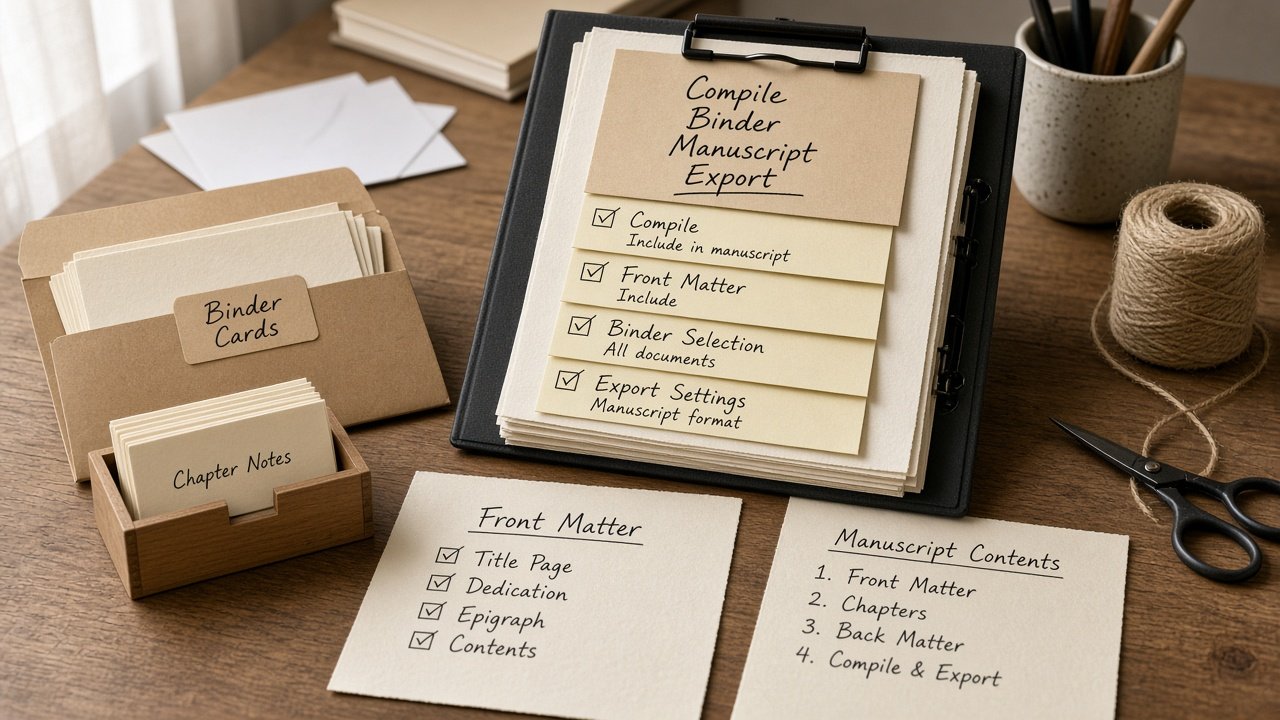 Compile
Binder
Manuscript
Export
Compile
Include in manuscript
Front Matter
Include
Binder Selection
All documents
Export Settings
Manuscript format
Binder
Cards
Chapter Notes
Front Matter
Title Page
Dedication
Epigraph
Contents
Manuscript Contents
1. Front Matter
2. Chapters
3. Back Matter
4. Compile & Export